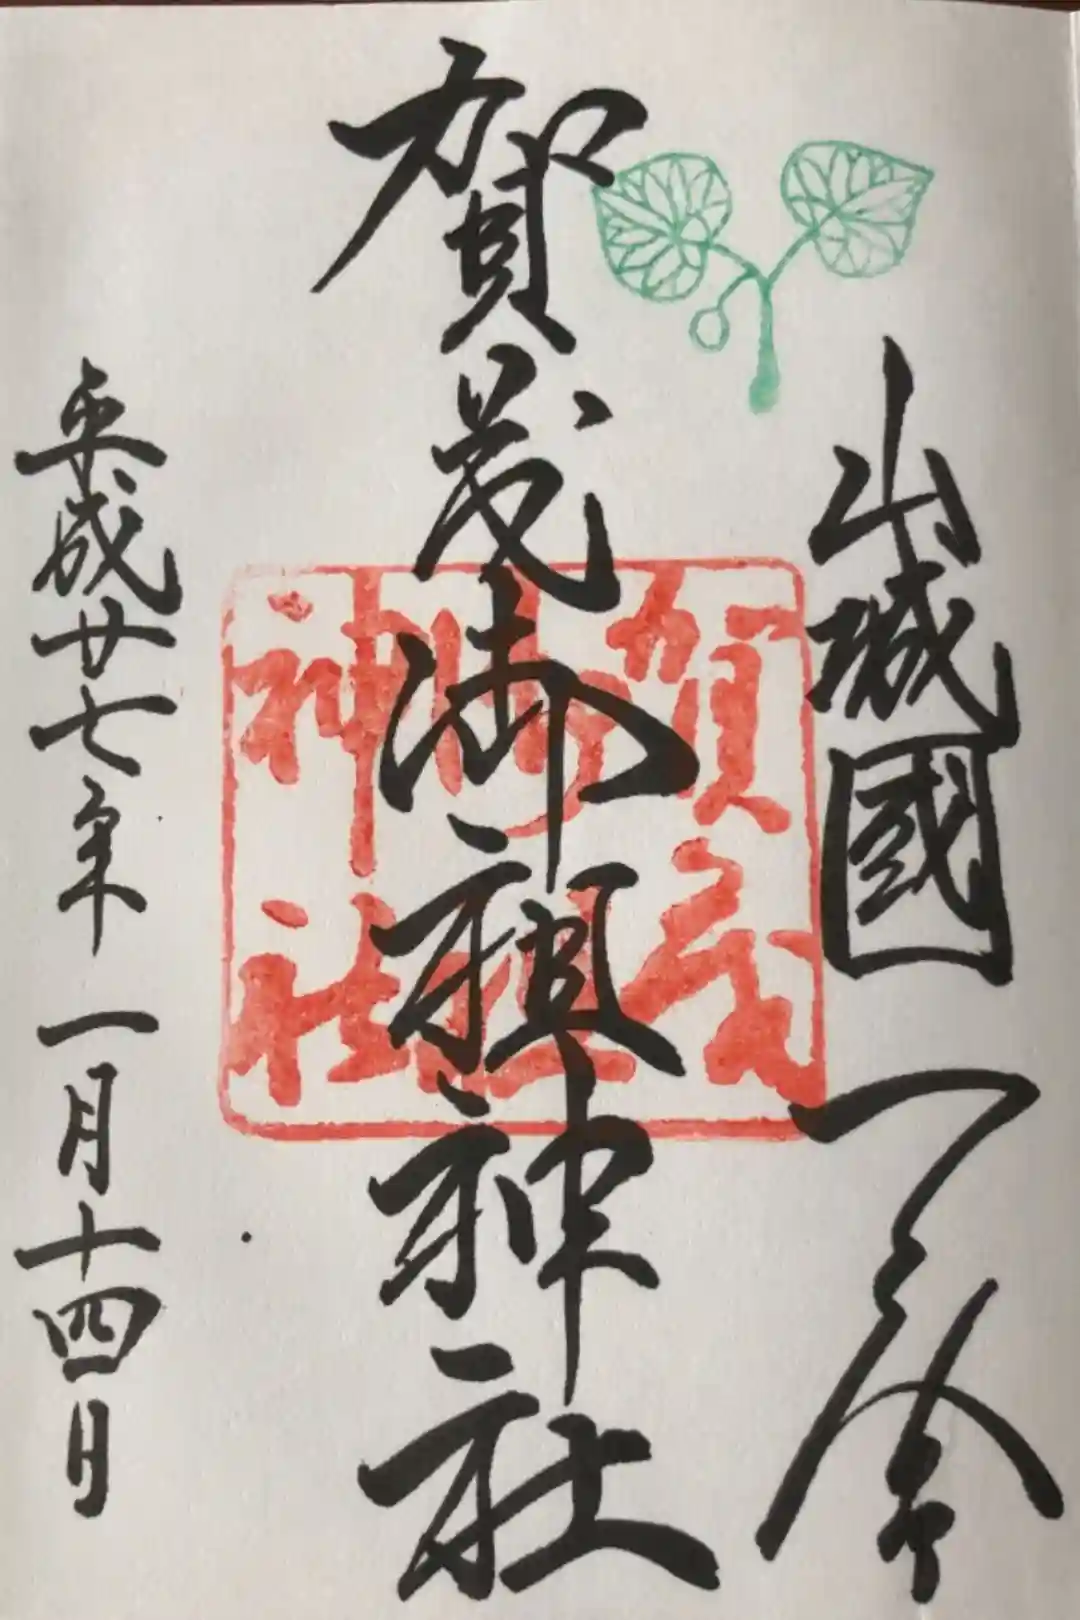 山城國一之宮
賀茂御祖神社
平成廿七年一月十四日
賀茂
御祖
神社